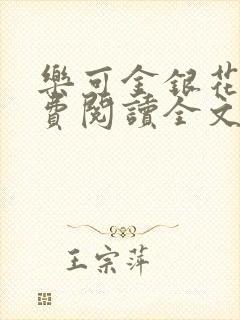 樂可金銀花
費閱讀全文
王宗萍